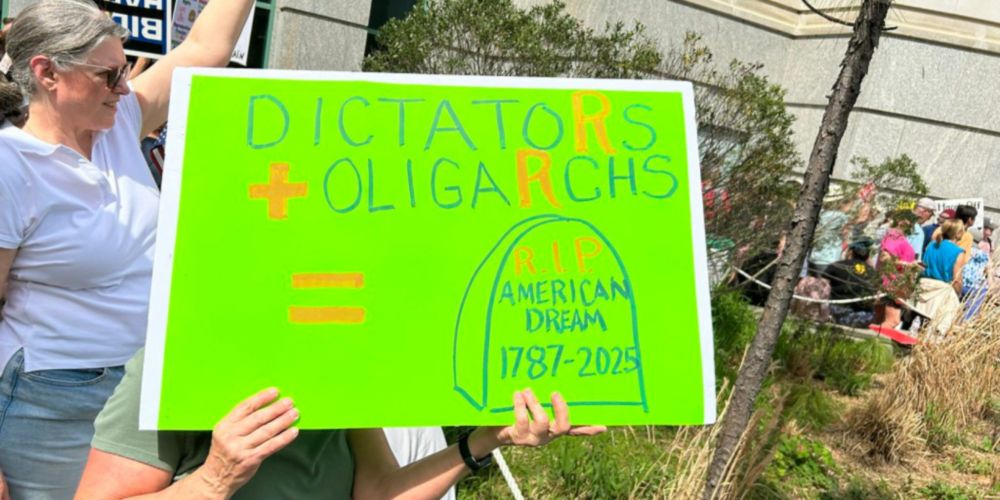 DICTATORS
+ OLIGARCHS
=
R.I.P.
AMERICAN
DREAM
1787-2025